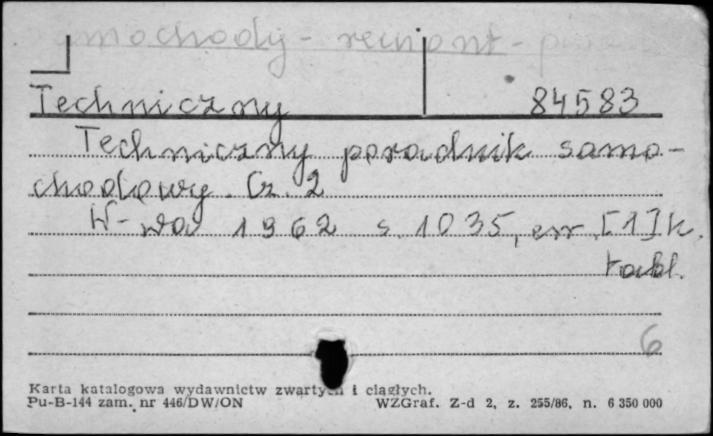 samochody - remont -
Techniczny 84583
Techniczny poradnik samo-
chodowy. Cz. 2
W-wa 1962 s. 1035, err. [1] k.
tabl.
6
Karta katalogowa wydawnictw zwartych i ciągłych.
Pu-B-144 zam. nr 446/DW/ON WZGraf. Z-d 2, z. 255/86, n. 6 350 000